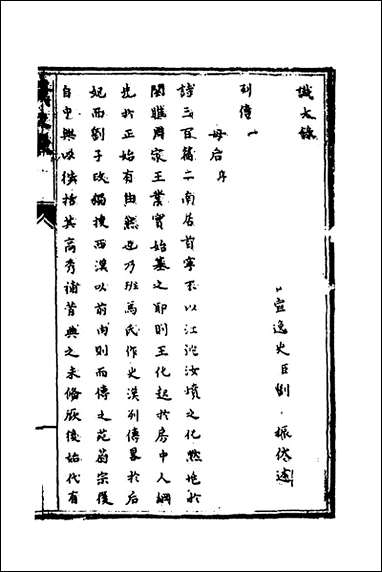 識大錄
宣逸史臣劉 振 述
列傳一
母后序
詩三百篇二南居首寧不以江沱汝墳之化 地於
關雎周家王業實始基之耶則王化起於房中人綱
先於正始有由然也乃班馬氏作史漢列傳畧於后
妃而劉子政獨搜西漢以前內則而傳之范蔚宗復
自中興以後括其高秀補昔典之未脩厥後始代有